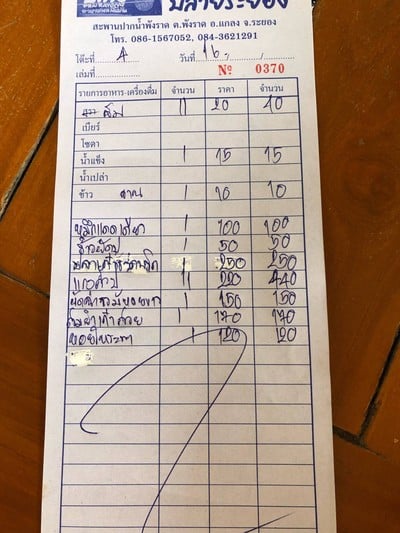 ปลายระยอง
สะพานปากน้ำพังราด ต.พังราด อ.แกลง จ.ระยอง
โทร. 086-1567052, 084-3621291
โต๊ะที่ 4 วันที่ 16
เล่มที่ № 0370
รายการอาหาร-เครื่องดื่ม จำนวน ราคา จำนวน
ส้ม 11 20 40
เบียร์
โซดา
น้ำแข็ง 1 15 15
น้ำเปล่า
ข้าว จาน 1 10 10
หมึกแดดเดียว 1 100 100
ข้าวผัดปู 1 50 50
250 250
11 220 440
1 150 150
1 170 170
หอยใบพะพา 1 120 120